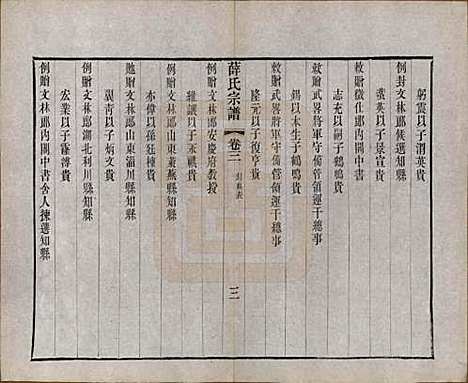 躬震以子渭英貴
例封文林郎候選知縣
黃英以子景宣貴
敕贈徵仕郎內閣中書
志充以嗣子鶴鳴貴
敕贈武畧將軍守備管領運千總事
錫以本生子鶴鳴貴
敕贈武畧將軍守備管領運千總事
隆元以子復亨貴
薛氏宗譜 卷三 三
例贈文林郎安慶府教授
維議以子禾祺貴
例贈文林郎山東萊蕪縣知縣
亦儁以孫廷棟貴
貤贈文林郎山東淄川縣知縣
襄青以子炳文貴
例贈文林郎湖北利川縣知縣
宏業以子霈溥貴
例贈文林郎內閣中書舍人揀選知縣